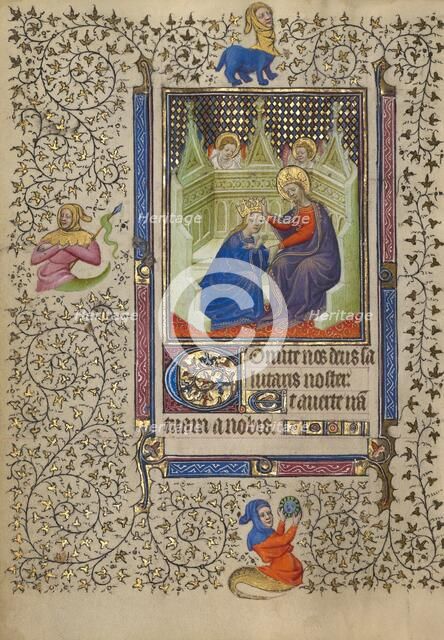 Heritage Heritage
Heritage Heritage
Heritage Heritage
Conuerte nos deus sa
lutaris noster
Et auerte iram
tuam a nobis